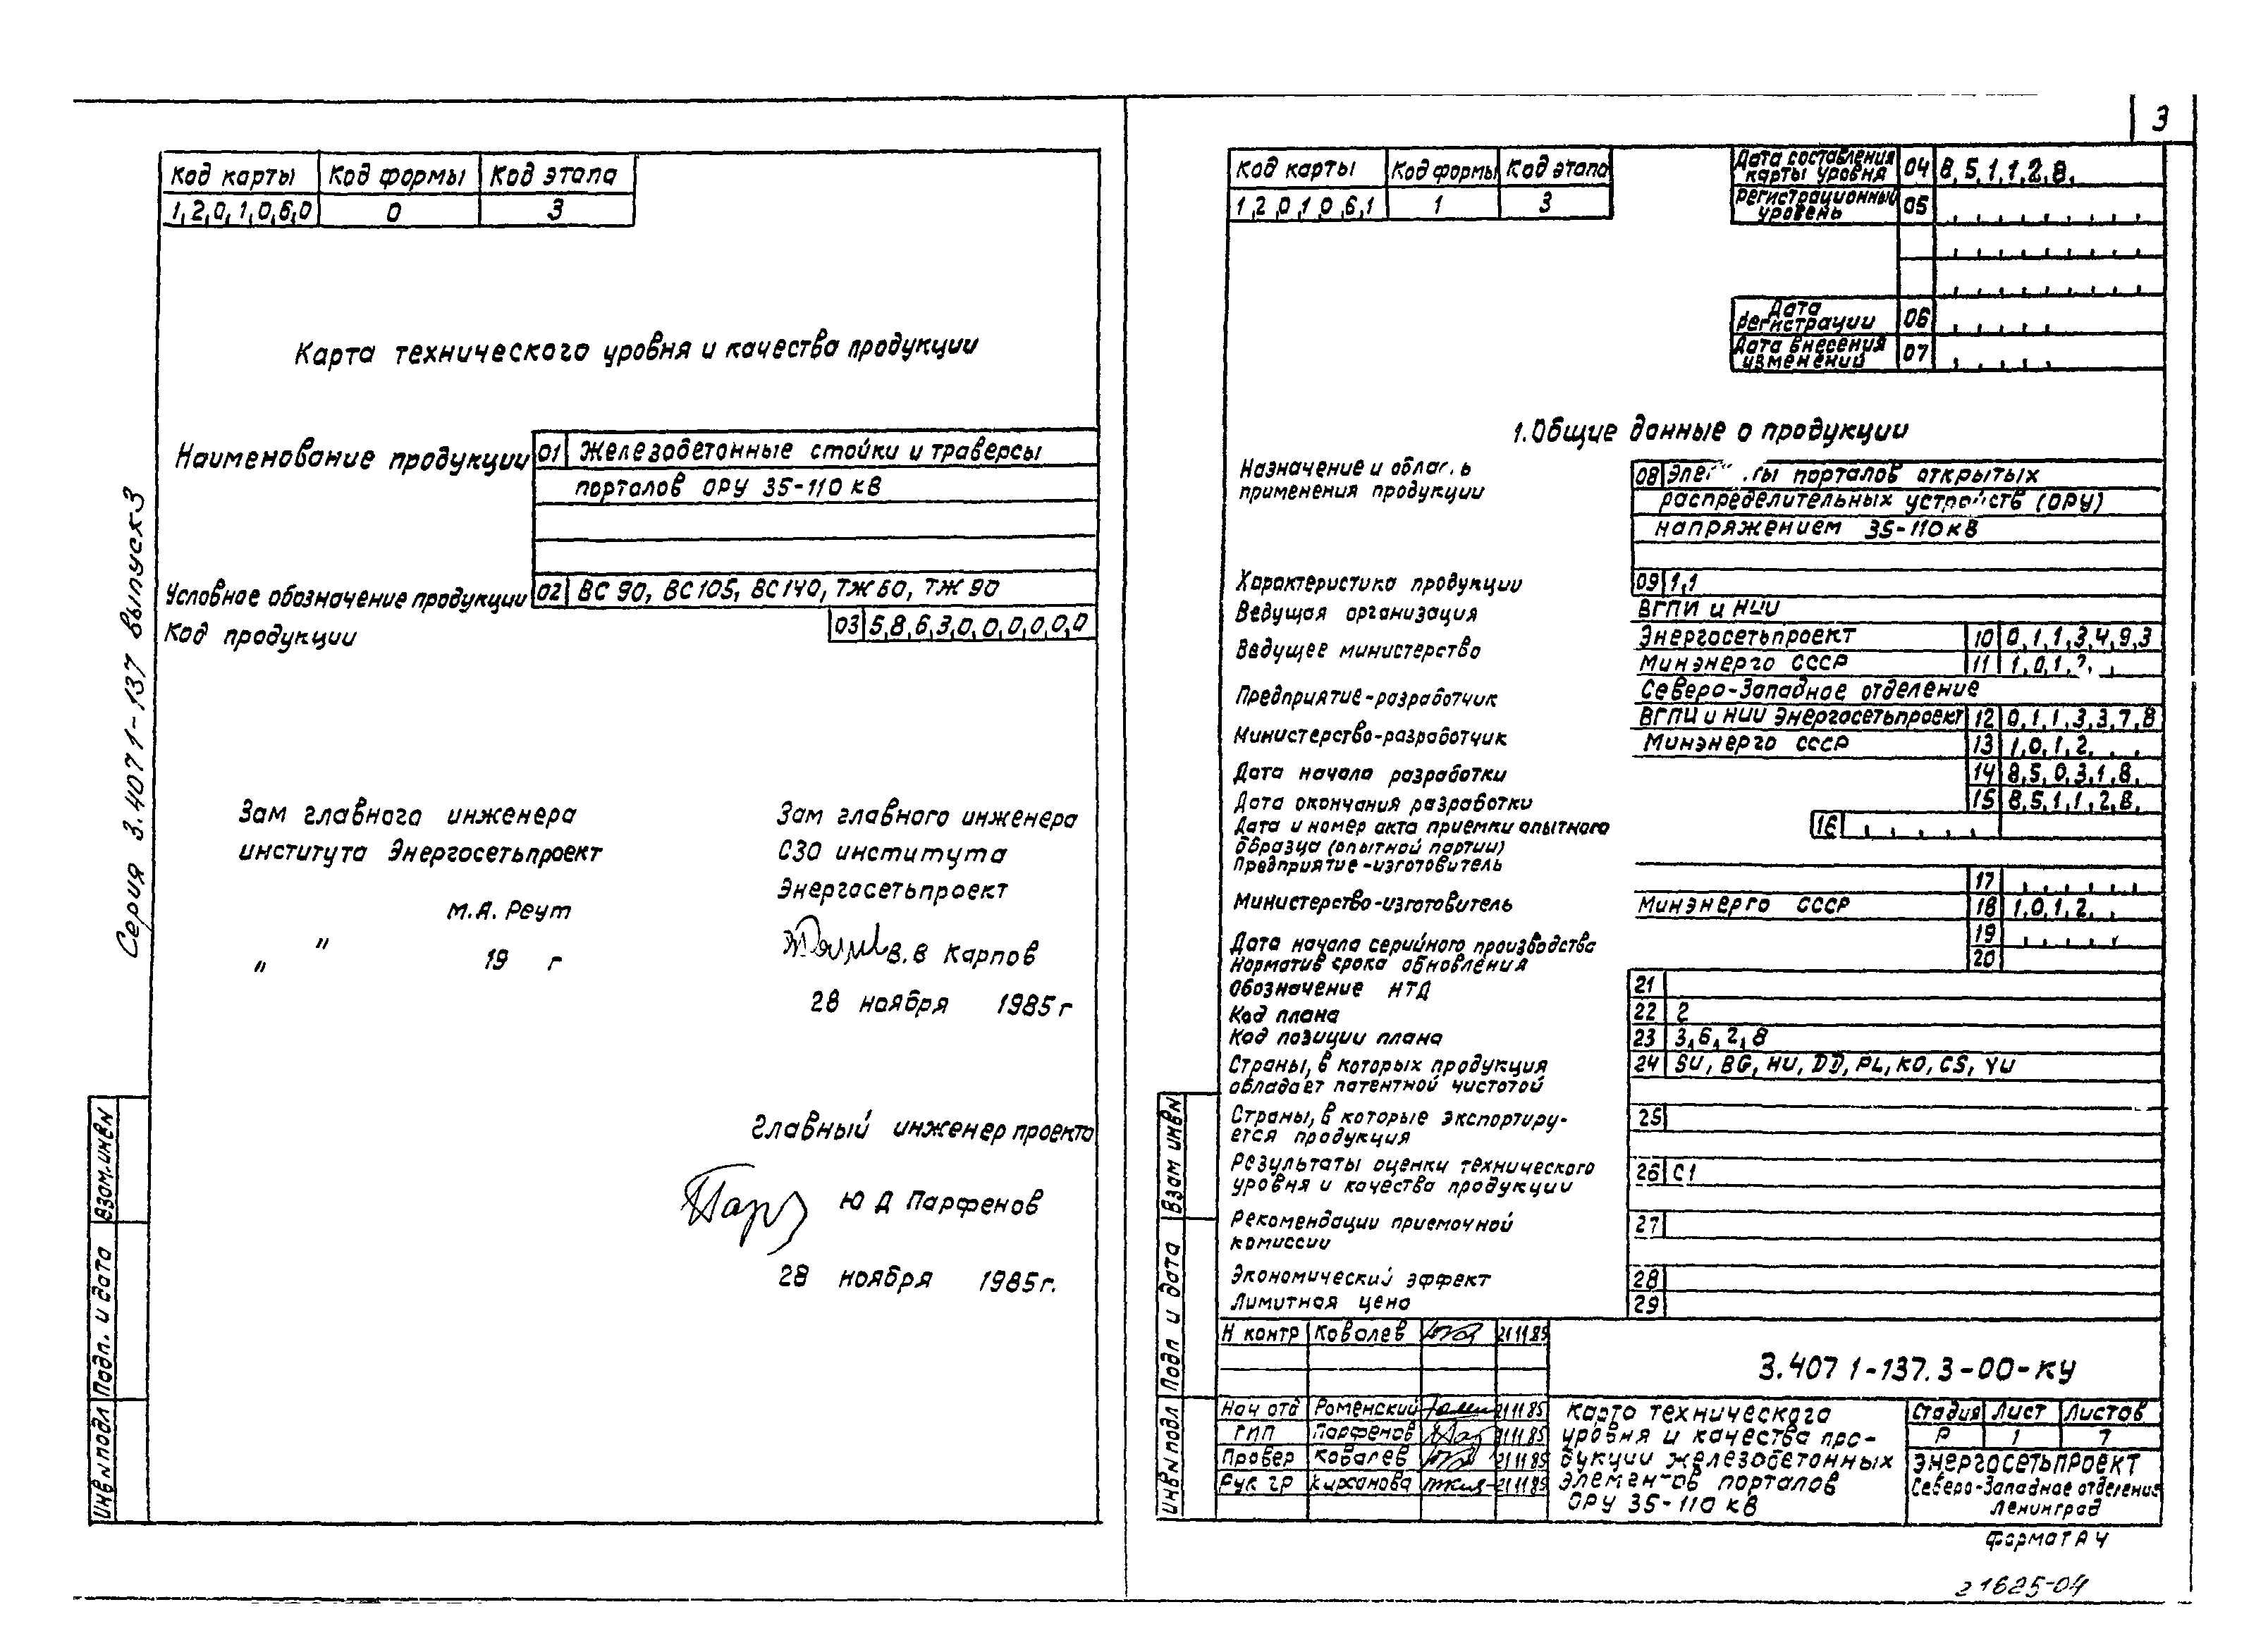 3
Код карты Код формы Код этапа
1,2,0,1,0,6,0 0 3
Карта технического уровня и качества продукции
Наименование продукции 01 Железобетонные стойки и траверсы
порталов ОРУ 35-110 кВ
Условное обозначение продукции 02 ВС 90, ВС 105, ВС 140, ТЖ 60, ТЖ 90
Код продукции 03 5,8,6,3,0,0,0,0,0,0
Серия 3.407 1-137 выпуск 3
Зам главного инженера
института Энергосетьпроект
М.А. Реут
" " 19 г
Зам главного инженера
СЗО института
Энергосетьпроект
В.В Карпов
28 ноября 1985 г
главный инженер проекта
Ю Д Парфенов
28 ноября 1985 г.
Взам.инв№
Подп. и дата
Инв№подл
Код карты Код формы Код этапа
1,2,0,1,0,6,1 1 3
Дата составления
карты уровня 04 8,5,1,1,2,8,
Регистрационный
уровень 05
Дата
регистрации 06
Дата внесения
изменений 07
1.Общие данные о продукции
Назначение и
применения продукции
08 порталов открытых
распределительных устройств (ОРУ)
напряжением 35-110кВ
Характеристика продукции 09 1,1
Ведущая организация ВГПИ и НИИ
Энергосетьпроект 10 0,1,1,3,4,9,3
Ведущее министерство Минэнерго СССР 11 1,0,1,
Предприятие-разработчик Северо-Западное отделение
ВГПИ и НИИ Энергосетьпроект 12 0,1,1,3,3,7,8
Министерство-разработчик Минэнерго СССР 13 1,0,1,2,
Дата начала разработки 14 8,5,0,3,1,8,
Дата окончания разработки 15 8,5,1,1,2,8,
Дата и номер акта приемки опытного 16
образца (опытной партии)
Предприятие-изготовитель 17
Министерство-изготовитель Минэнерго СССР 18 1,0,1,2,
Дата начала серийного производства 19
Норматив срока обновления 20
Обозначение НТД 21
Код плана 22 2
Код позиции плана 23 3,6,2,8
Страны, в которых продукция 24 SU, BG, HU, DD, PL, KO, CS, YU
обладает патентной чистотой
Страны, в которые экспортиру- 25
ется продукция
Результаты оценки технического 26 С1
уровня и качества продукции
Рекомендации приемочной 27
комиссии
Экономический эффект 28
Лимитная цена 29
Взам инв№
Подп и дата
Инв№подл
Н контр Ковалев 21.11.85
3.407 1-137.3-00-КУ
Нач отд Роменский 21.11.85
ГИП Парфенов 21.11.85
Провер Ковалев 21.11.85
Рук гр Кирсанова 21.11.85
Карта технического
уровня и качества про-
дукции железобетонных
элементов порталов
ОРУ 35-110 кВ
Стадия Лист Листов
Р 1 7
Энергосетьпроект
Северо-Западное отделение
Ленинград
Формат А4
21625-04